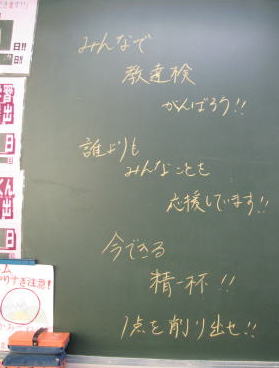 みんなで
教達検
がんばろう!!
誰よりも
みんなことを
応援しています!!
今できる
精一杯!!
1点を削り出せ!!
日!!
日!!
習
出
日
くん
出
日
ム
りすぎ注意!